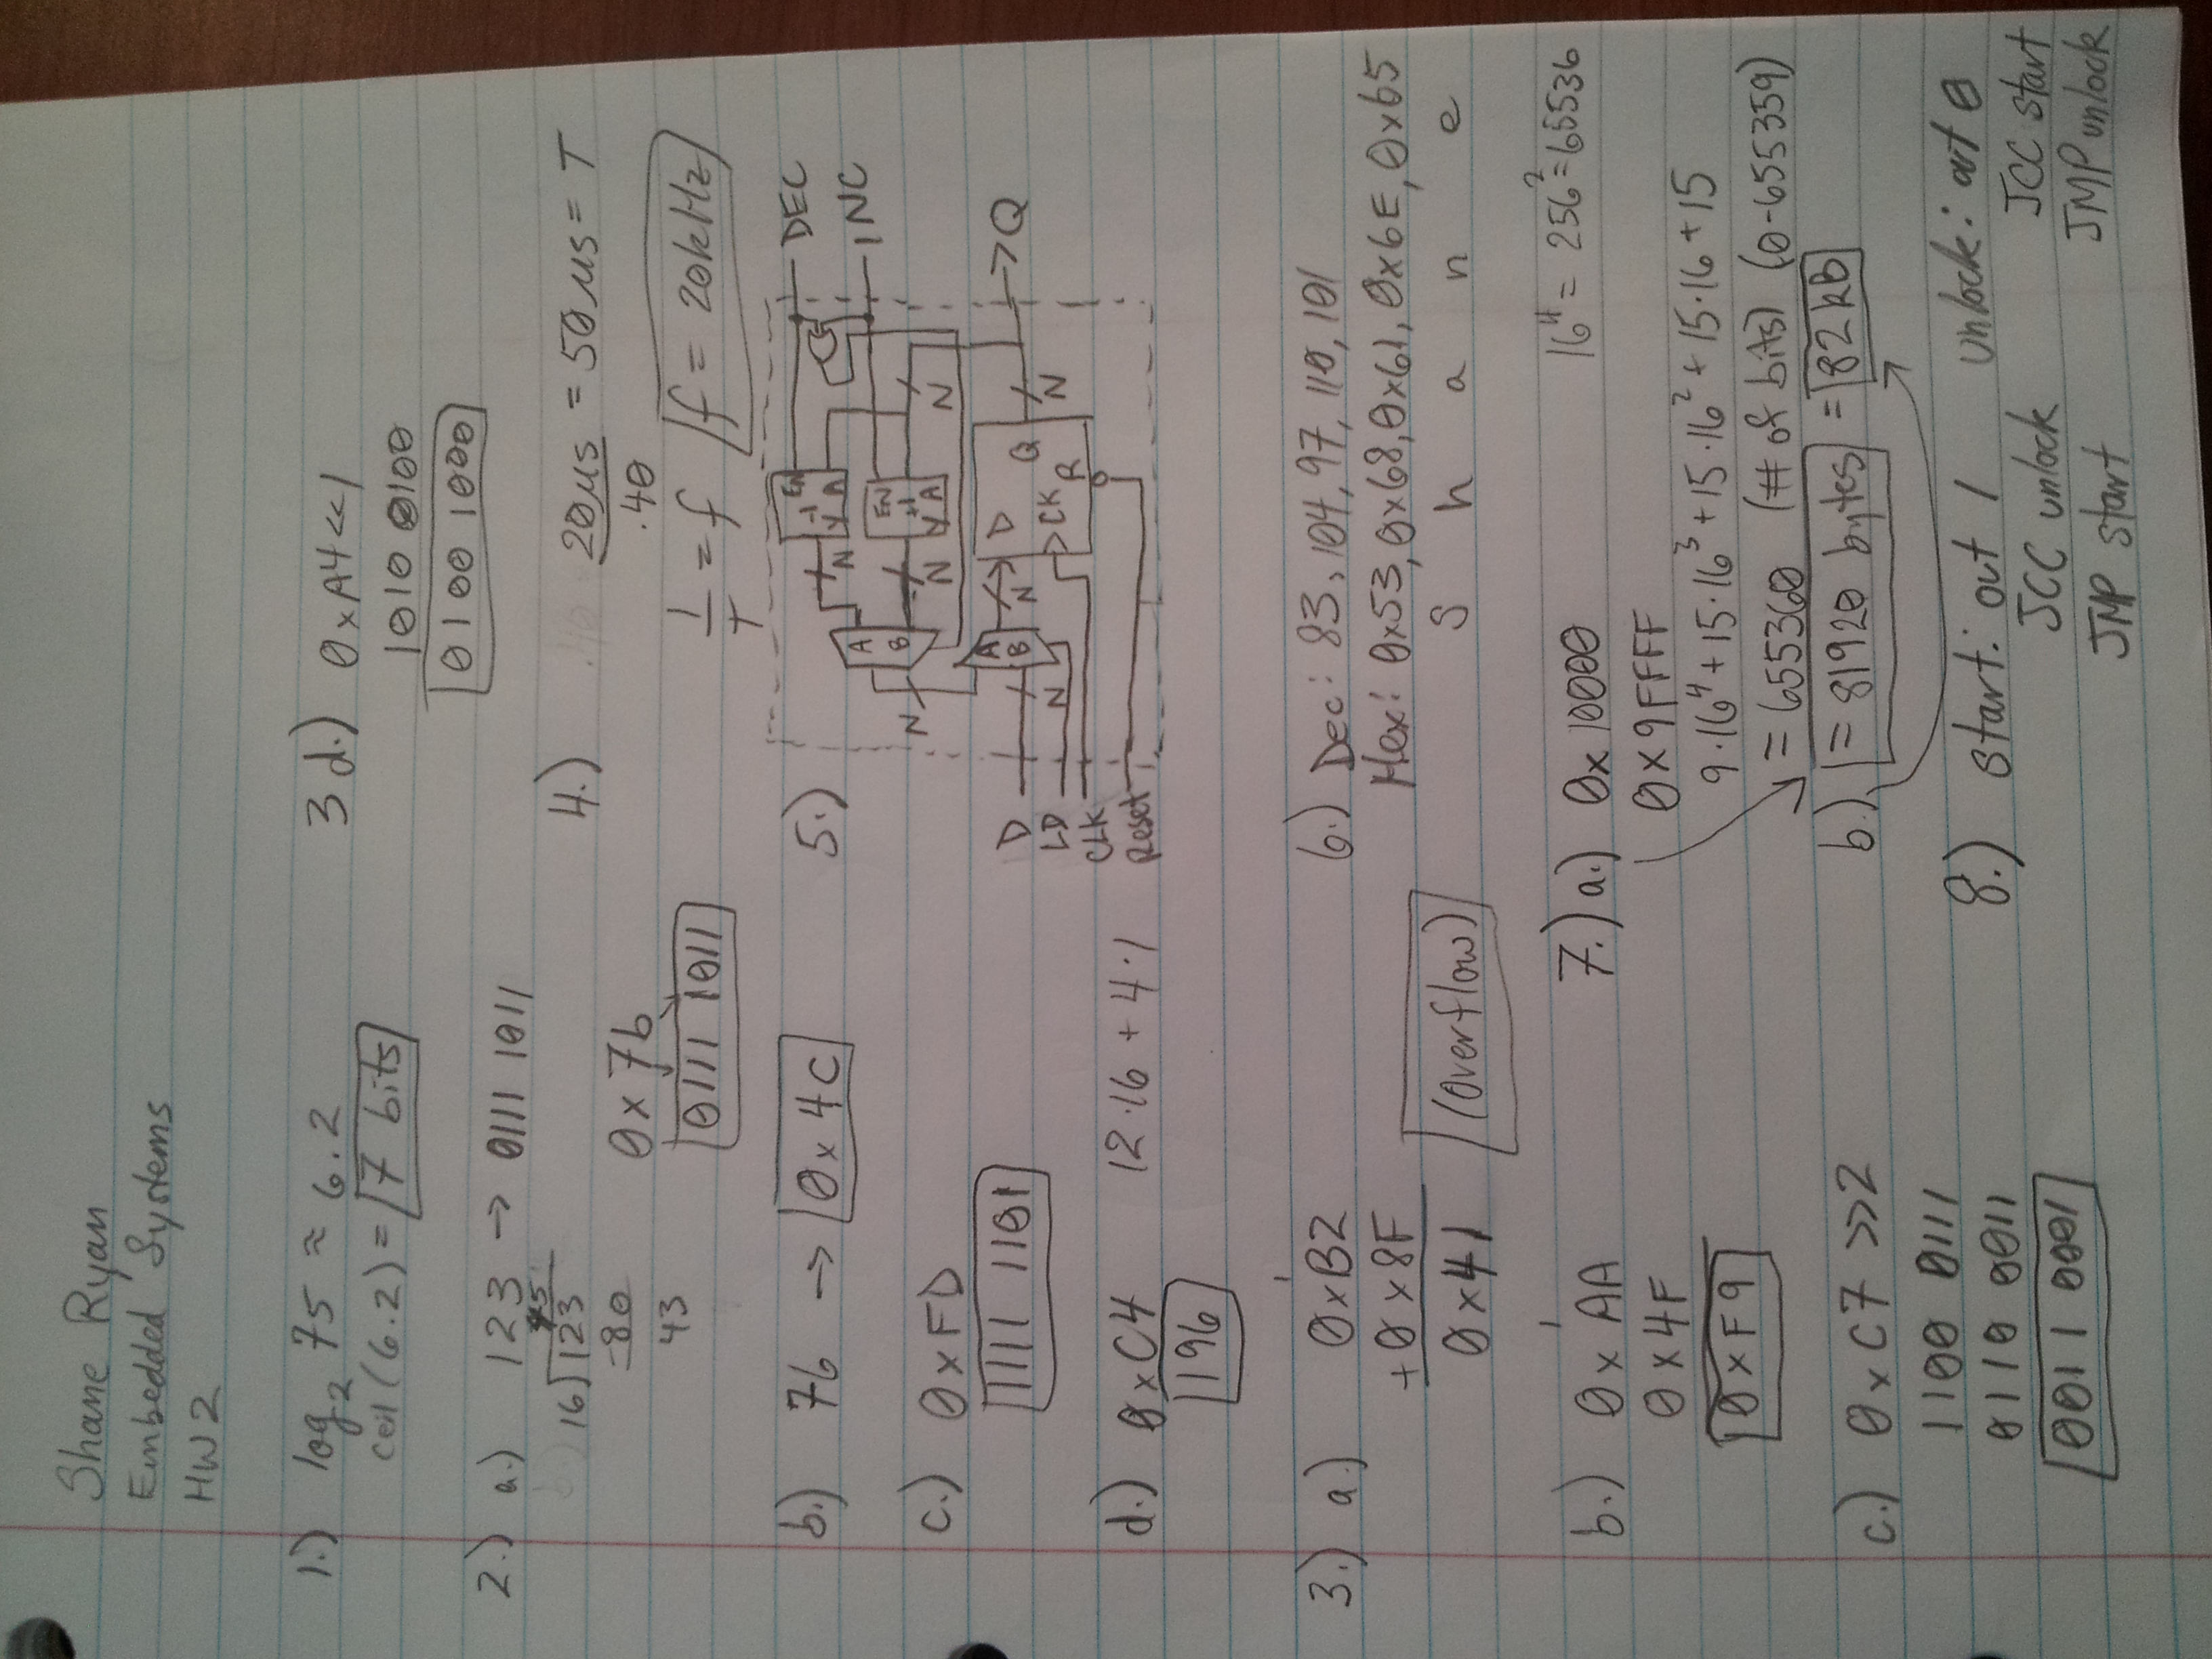 Shane Ryan
Embedded Systems
HW2
1.) log₂ 75 ≈ 6.2
ceil (6.2) = 7 bits
2.) a.) 123 → 0111 1011
16)123
-80
43
0x7b
0111 1011
b.) 76 → 0x4C
c.) 0xFD
1111 1101
d.) 0xC4 12·16 + 4·1
196
3.) a.) 1
0xB2
+0x8F
0x41 (Overflow)
b.) 1
0xAA
0x4F
0xF9
c.) 0xC7 >>2
1100 0111
0110 0011
0011 0001
3 d.) 0xA4<<1
1010 0100
0100 1000
4.) 20μs = 50μs = T
.40
1/T = f f = 20kHz
5.)
EN -1 Y A DEC
N
A B
INC
EN +1 Y A
N
N
N
A B
D
LD
CLK
Reset
N
N
D Q CK R
N
Q
6.) Dec: 83, 104, 97, 110, 101
Hex: 0x53, 0x68, 0x61, 0x6E, 0x65
S h a n e
7.) a.) 0x10000 16⁴ = 256² = 65536
0x9FFFF
9·16⁴ + 15·16³ + 15·16² + 15·16 + 15
= 655360 (# of bits) (0-655359)
b.) = 81920 bytes = 82kB
8.) start: out 1 unlock: out 0
JCC unlock JCC start
JMP start JMP unlock